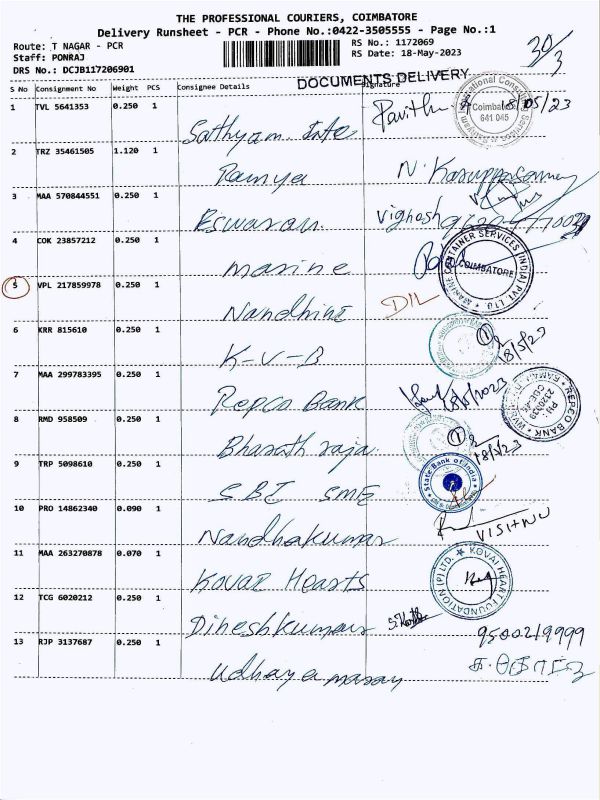 THE PROFESSIONAL COURIERS, COIMBATORE
Delivery Runsheet - PCR - Phone No.:0422-3505555 - Page No.:1
Route: T NAGAR - PCR
Staff: PONRAJ
DRS No.: DCJB117206901
RS No.: 1172069
RS Date: 18-May-2023
30/3
DOCUMENTS DELIVERY
S No Consignment No Weight PCS Consignee Details Signature
1 TVL 5641353 0.250 1
Sathyam Inte
Pavithr 18/05/23
Coimbatore
641 045
2 TRZ 35461505 1.120 1
Ramya
N. Karuppasamy
3 MAA 570844551 0.250 1
Eswaran
Vighnesh
4 COK 23857212 0.250 1
marine
MARINE CONTAINER SERVICES (INDIA) PVT. LTD
COIMBATORE
5 VPL 217859978 0.250 1
Nandhini
D/L
6 KRR 815610 0.250 1
K-V-B
18/5/23
7 MAA 299783395 0.250 1
Repco Bank
18/5/2023
REPCO BANK
PH:
8 RMD 958509 0.250 1
Bharath raja
18/5/23
9 TRP 5098610 0.250 1
SBI SME
State Bank of India
10 PRO 14862340 0.090 1
Nandhakumar
VISHNU
11 MAA 263270878 0.070 1
Kovai Hearts
KOVAI HEART FOUNDATION (P) LTD.
12 TCG 6020212 0.250 1
Dineshkumar
9500219999
13 RJP 3137687 0.250 1
Udhayamaray